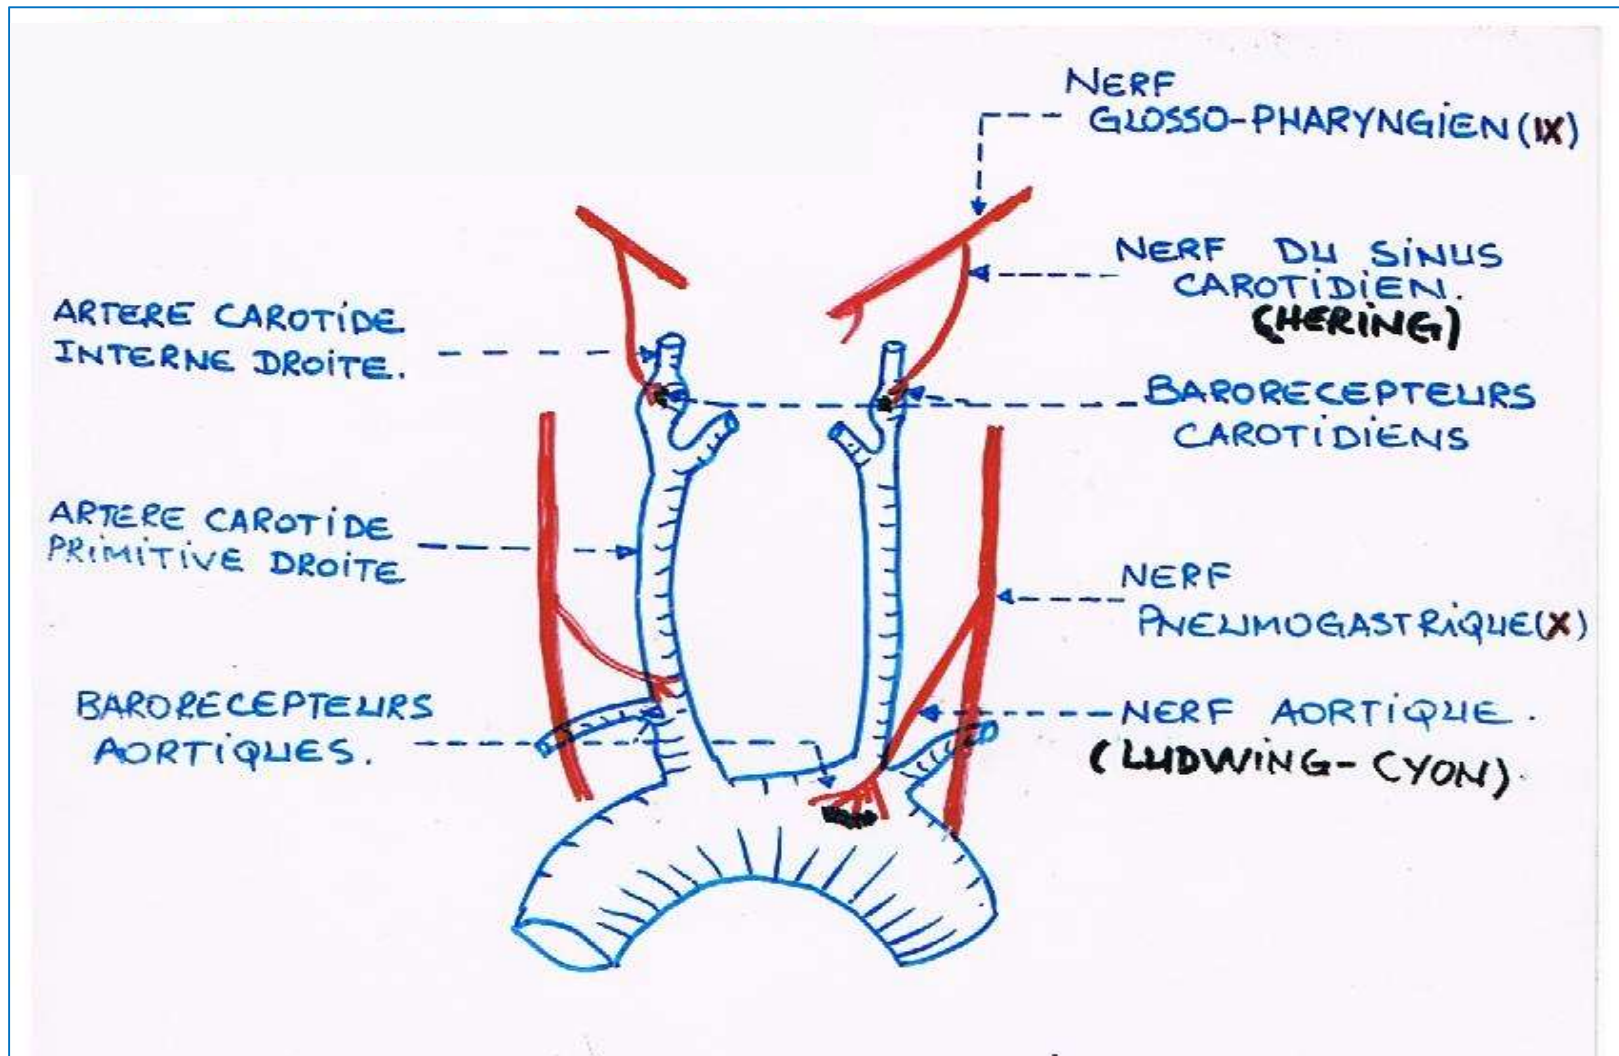 NERF
GLOSSO-PHARYNGIEN (IX)
NERF DU SINUS
CAROTIDIEN.
(HERING)
ARTERE CAROTIDE
INTERNE DROITE.
BARORECEPTEURS
CAROTIDIENS
ARTERE CAROTIDE
PRIMITIVE DROITE
NERF
PNEUMOGASTRIQUE (X)
BARORECEPTEURS
AORTIQUES.
NERF AORTIQUE.
(LUDWING-CYON).